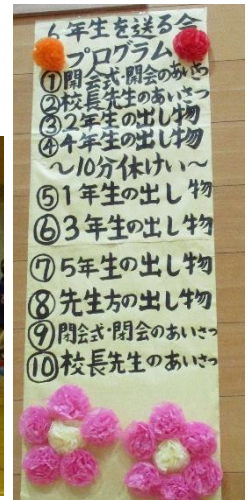 6年生を送る会
プログラム
①開会式・開会のあいさつ
②校長先生のあいさつ
③2年生の出し物
④4年生の出し物
〜10分休けい〜
⑤1年生の出し物
⑥3年生の出し物
⑦5年生の出し物
⑧先生方の出し物
⑨閉会式・閉会のあいさつ
⑩校長先生のあいさつ